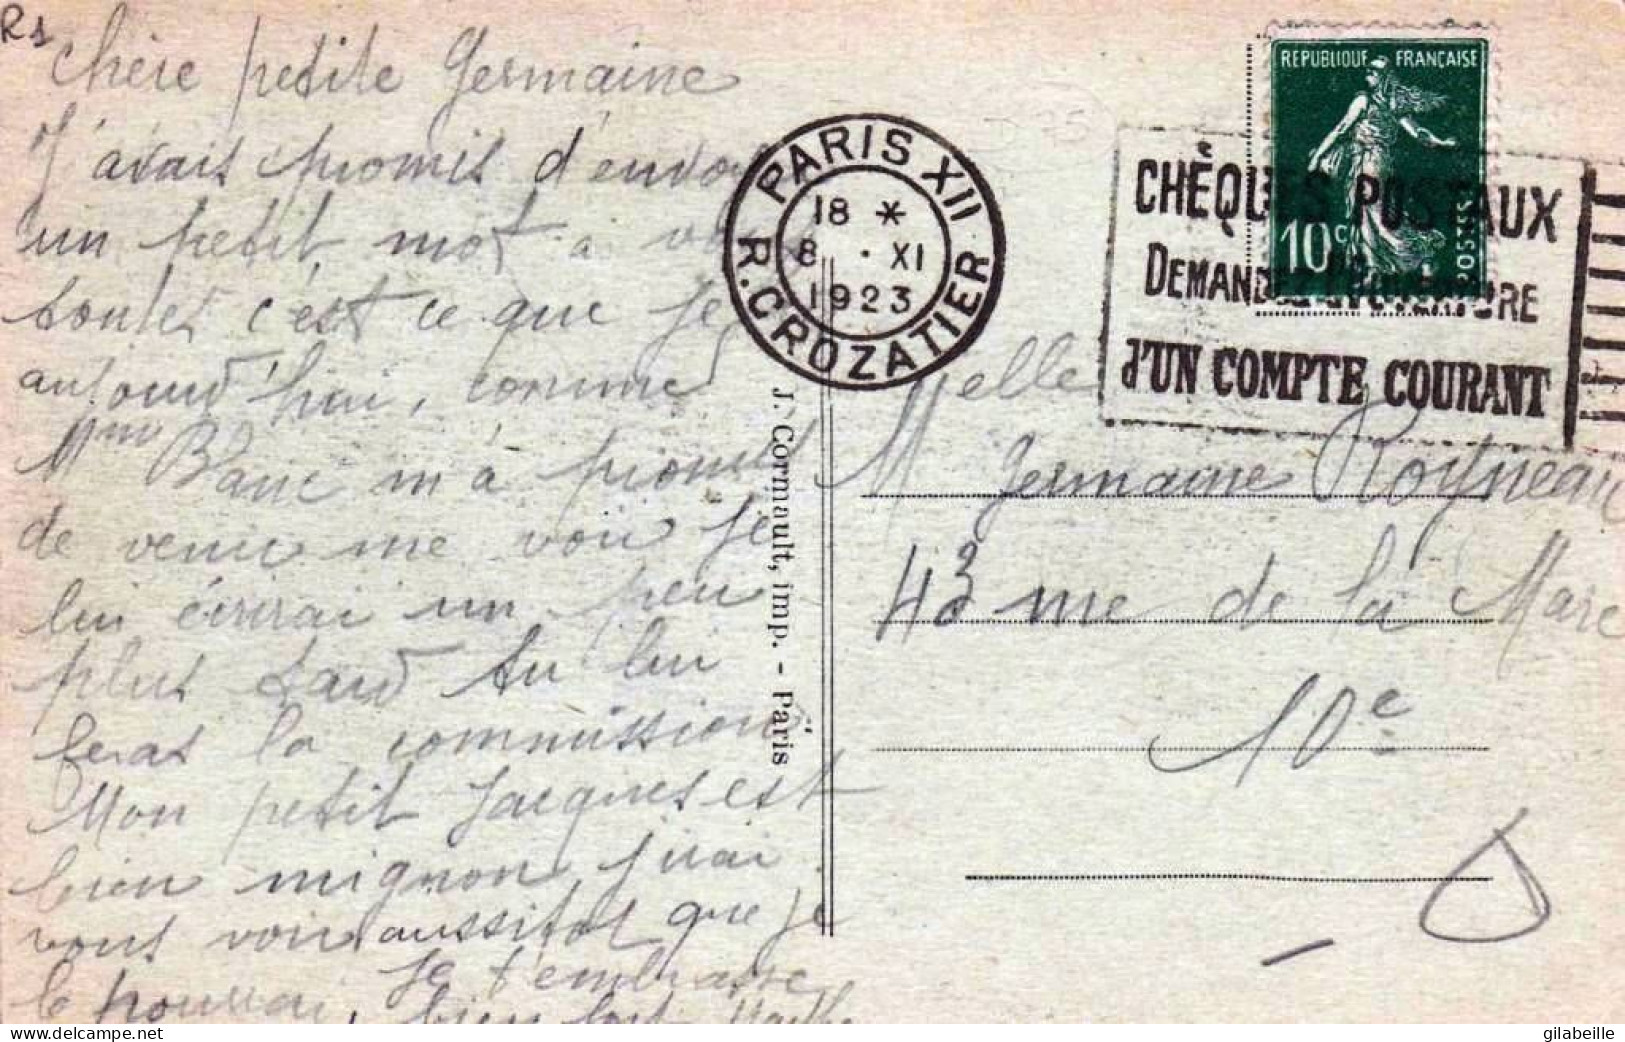 R1
Chère petite Germaine
J'avais promis d'envoy
un petit mot a v
toutes c'est ce que je
aujourd'hui, comme
Mme Blanc m'a promis
de venir me voir je
lui écrirai un peu
plus tard tu lui
feras la commission
Mon petit Jacques est
bien mignon j'irai
vous voir aussitot que je
le pourrai, Je t'embrasse
bien fort Marthe
J. Cormault, imp. - Paris
PARIS XII
18 *
8 . XI
1923
R. CROZATIER
REPUBLIQUE FRANÇAISE
10c
POSTES
CHÈQUES POSTAUX
DEMANDEZ L'OUVERTURE
d'UN COMPTE COURANT
Melle
Germaine Royneau
43 rue de la Mare
10e
delcampe.net
gilabeille